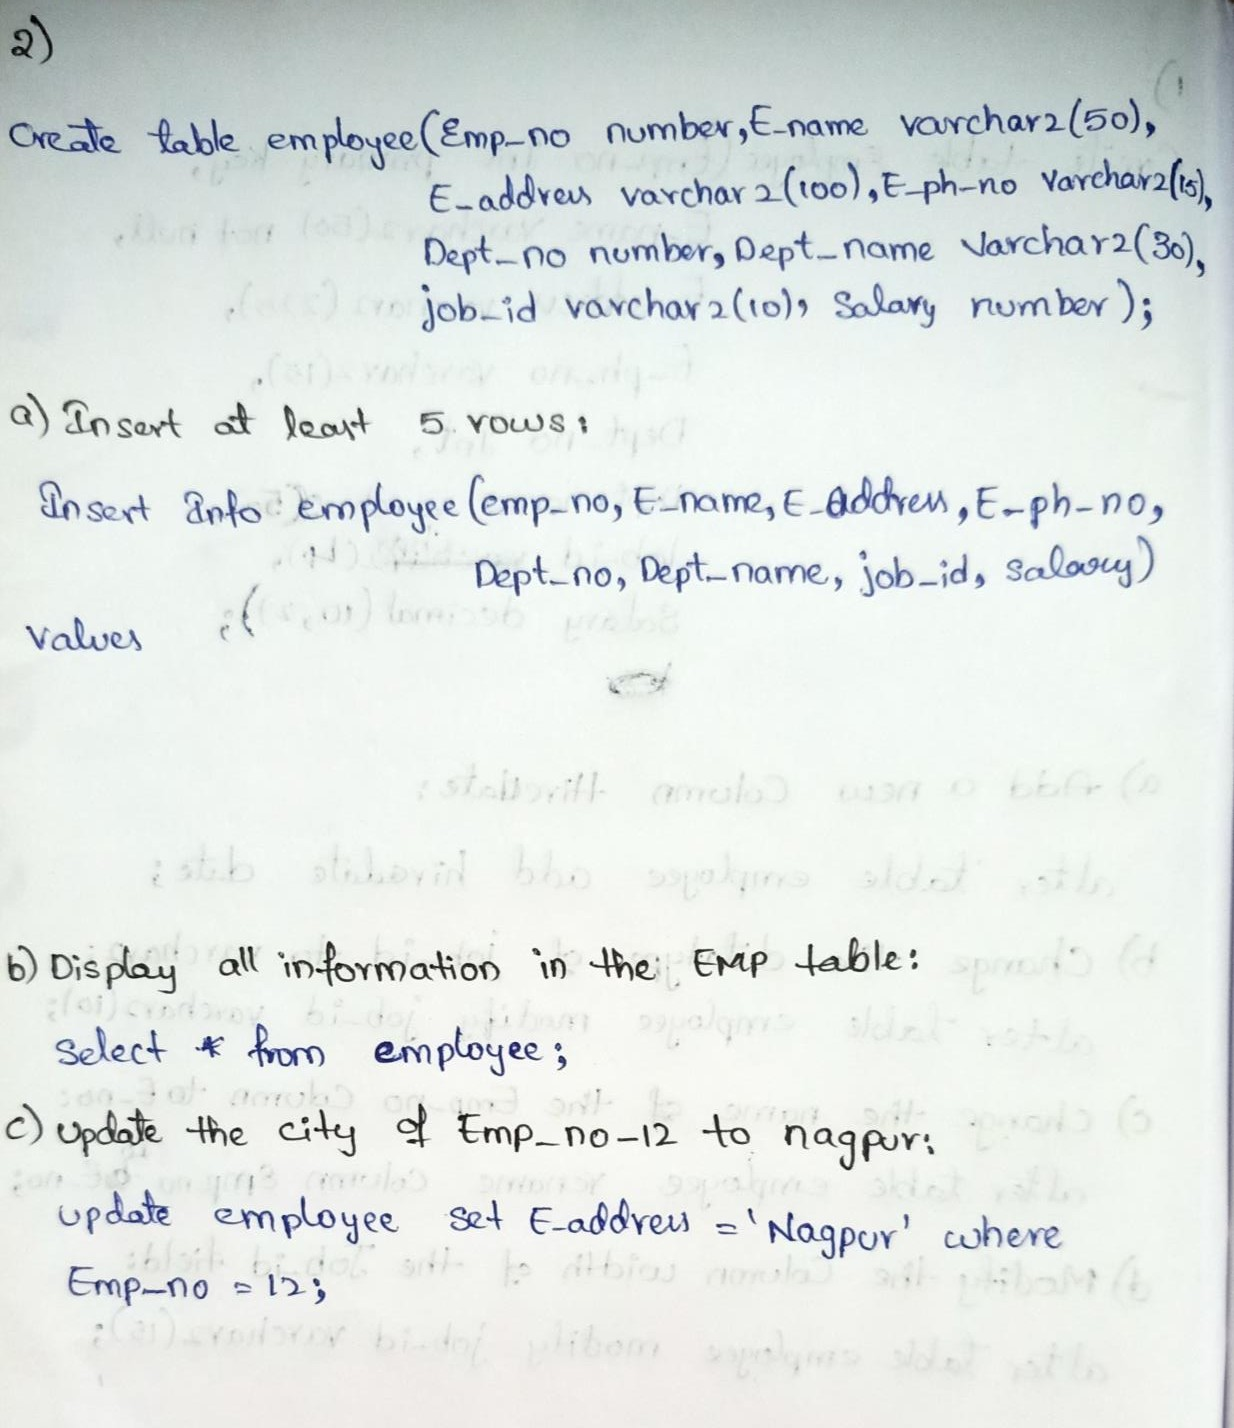 2)
Create table employee(Emp_no number, E_name varchar2(50),
E_address varchar2(100), E_ph_no varchar2(15),
Dept_no number, Dept_name varchar2(30),
job_id varchar2(10), Salary number);
a) Insert at least 5 rows:
Insert into employee(emp_no, E_name, E_address, E_ph_no,
Dept_no, Dept_name, job_id, salary)
values
b) Display all information in the EMP table:
Select * from employee;
c) update the city of Emp_no-12 to nagpur:
update employee set E_address = 'Nagpur' where
Emp_no = 12;